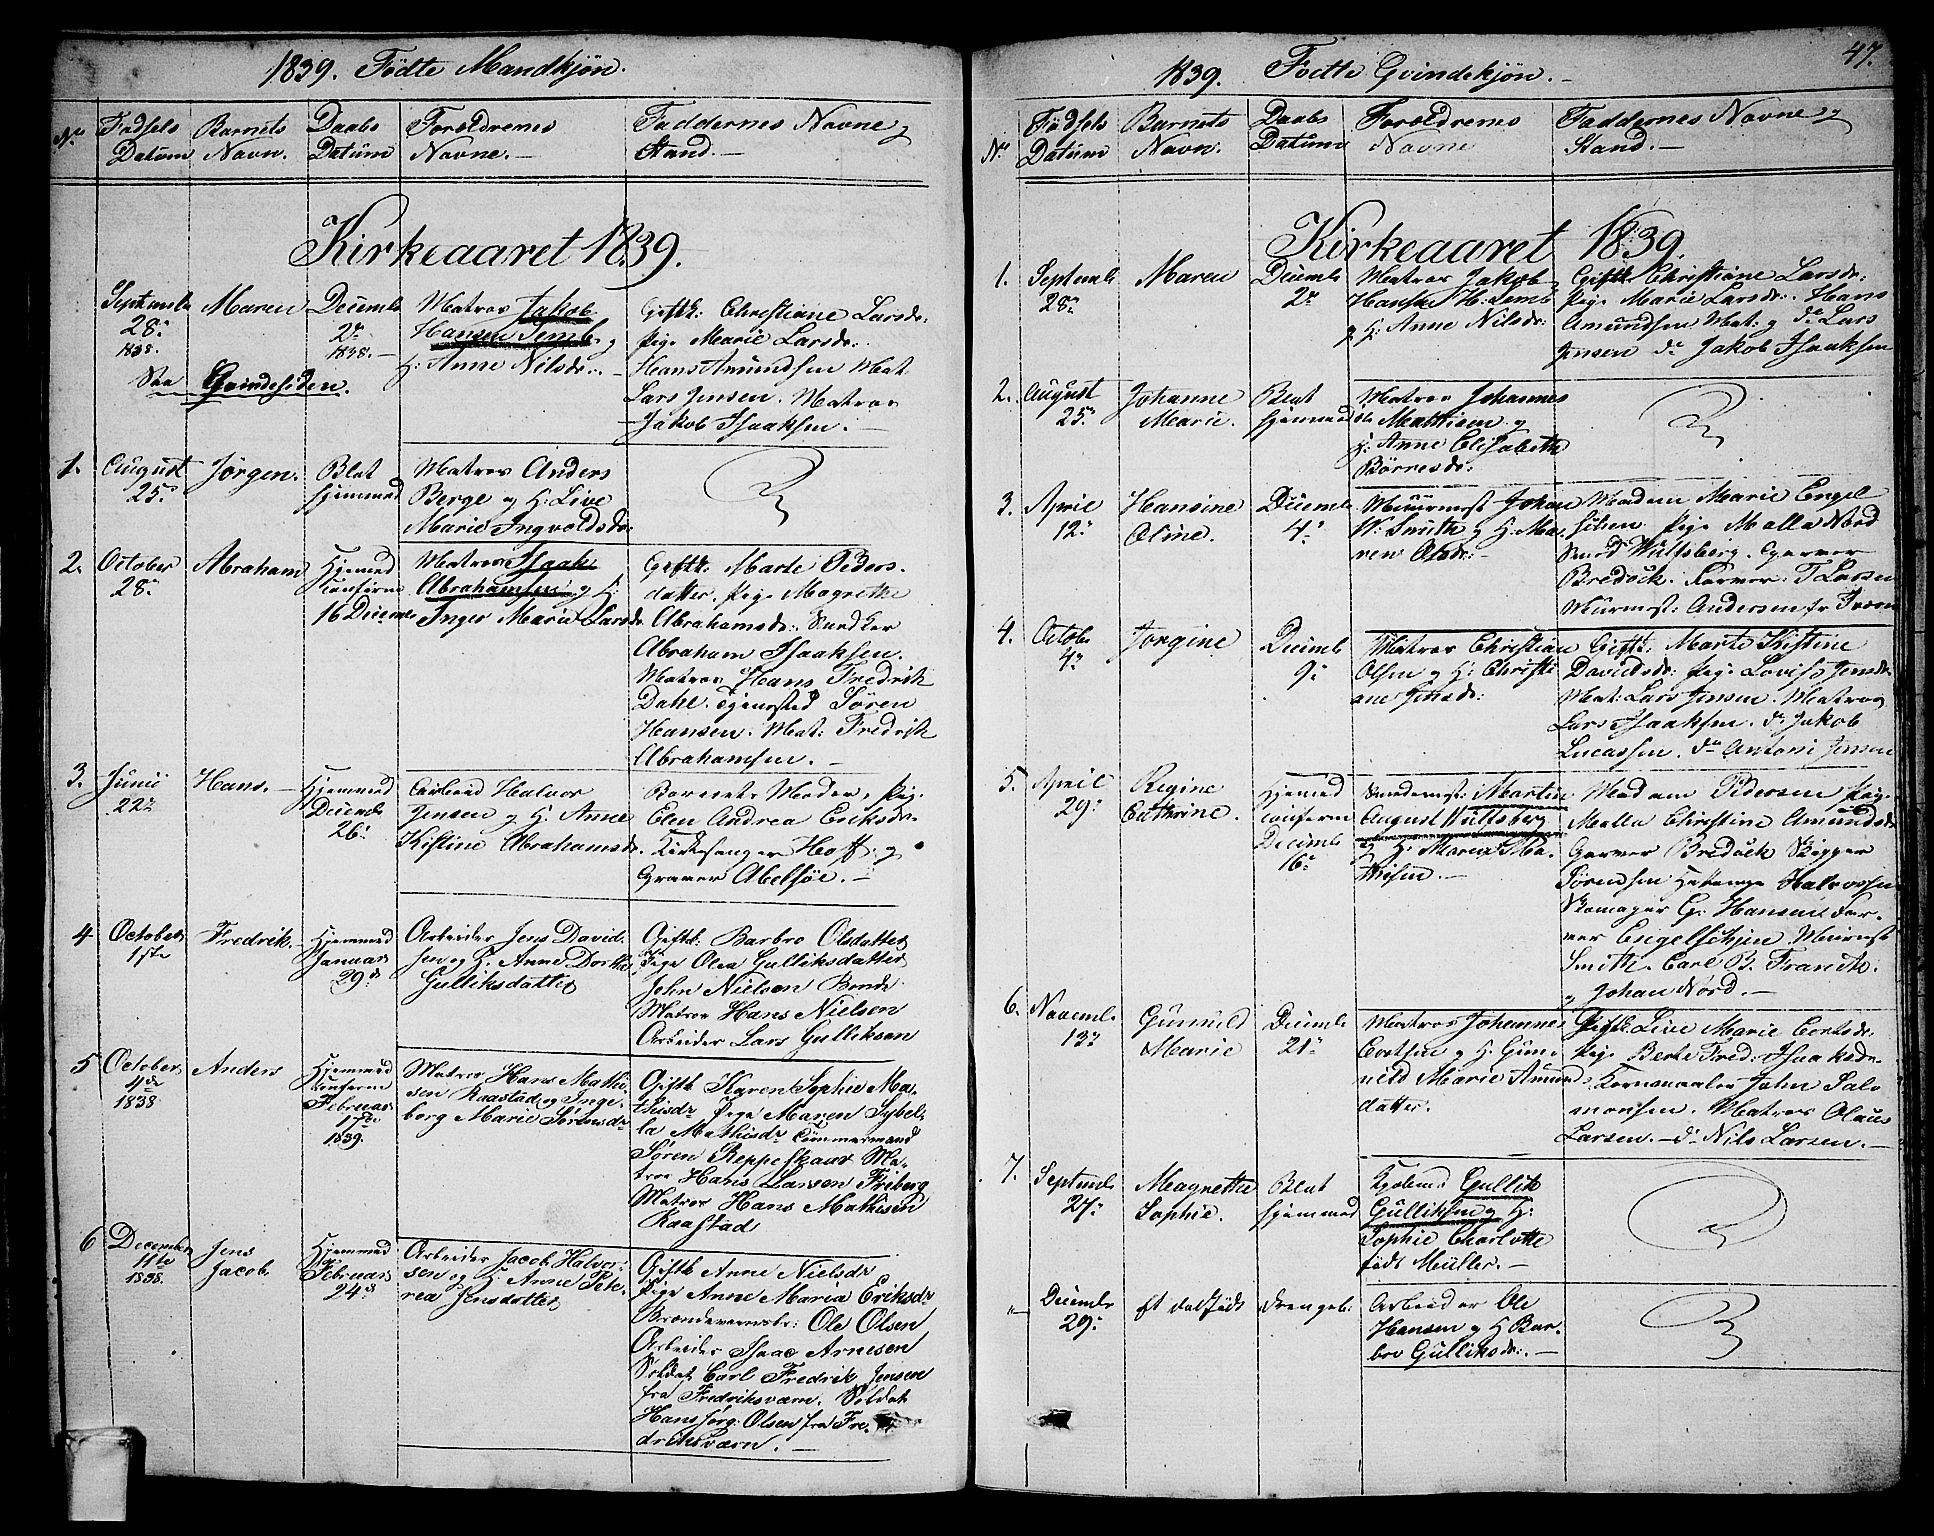 1839. Fødte Mandkjøn.
No
Fødsels
Datum
Barnets
Navn.
Daabs
Datum
Foreldrenes
Navne.
Faddernes Navne og
Stand.
Kirkeaaret 1839.
Septembr
28de
1838.
See Qvindesiden.
Maren
Decembr
2den
1838.
Matros Jakob
Hansen Semb og
H: Anne Nilsdr:
Gifte: Christiane Larsdr:
Pige Marie Larsdr:
Hans Amundsen Mat.
Lars Jensen. Matros
Jakob Isaaksen.
1.
August
25de
Jørgen.
Blot
hjemmed
Matros Anders
Berge og H: Live
Marie Ingvoldsdr:
2.
October
28de
Abraham
Hjemmed
Conferm
16 Decembr
Matros Isaak
Abrahamsen og H:
Inger Marie Larsdr
Gifte: Marte Peders-
datter. Pige Magrethe
Abrahamsdr: Snedker
Abraham Isaaksen.
Matros Hans Fredrik
Dahl. Søren
Hansen. Mat: Fredrik
Abrahamsen.
3.
Junii
22de
Hans.
Hjemmed
Decembr
26.
Arbeid Halvor
Jensen og H: Anne
Kistine Abrahamsdr.
Barnets Moder, Pig.
Elen Andrea Eriksdr
Kirkesanger Hoff. og
Graver Abelsøe.
4
October
1ste
Fredrik.
Hjemmed
Januar
29de
Arbeider Jens David-
sen og H: Anne Dorthe
Gulliksdatter
Gifte: Barbro Olsdatter
Pige Olea Gulliksdatter
John Nielsen Bonde
Matros Hans Nielsen
Arbeider Lars Gulliksen
5
October
4de
1838
Anders
Hjemmed
Conferm
Februar
17de
1839.
Matros Hans Mathi-
sen Raastad og Inge-
borg Marie Sørensdr
Gifte Karen Sophie Ma-
thisdr Pige Maren Sybel-
la Mathisdr Tømmermand
Søren Reppeskaar Ma-
tros Hans Larsen Friberg
Matros Hans Mathisen
Raastad
6
December
11te
1838.
Jens
Jacob
Hjemmed
Februar
24de
Arbeider Jacob Halvor-
sen og H: Anne Pete-
rea Jensdatter
Gifte Anne Nielsdr
Pige Anne Maria Eriksdr
Ole Olsen
Arbeider Isaac Arnesen
Soldat Carl Fredrik Jensen
fra Fredriksværn. Soldat
Hans Jørg: Olsen fra Fre-
driksværn.
47.
1839. Fødte Qvindekjøn.
No
Fødsels
Datum
Barnets
Navn.
Daabs
Datum
Foreldrenes
Navne
Faddernes Navne og
Stand.
Kirkeaaret 1839.
1.
Septembr
28de
Maren
Decembr
2de
Matros Jakob
Hansen Semb
og H: Anne Nilsdr:
Gifte Christiane Larsdr:
Pige Marie Larsdr: Hans
Amundsen Mat: og do Lars
Jensen do Jakob Isaaksen
2.
August
25de
Johanne
Marie.
Blot
hjemmed
Matros Johannes
Mathisen og
H: Anne Elisabethe
Børresdr:
3.
April
12de
Hansine
Oline.
Decembr
4de
Muurmest Johan
W: Smith og H: Ma-
ren Olsdr:
Madam Marie Engel
Pige Malla Nord
Wulfsberg. Garver
Bredock. Farver: T Larsen
Muurmest: Andersen fr
4.
Octobr
4de
Jorgine
Decembr
9de
Matros Christian
Olsen og H: Christi-
ane Jensdr:
Gifte: Marte Kistine
Davidsdr: Pige Lovise Jensdr
Mat: Lars Jensen. Matros
Lars Isaaksen. do Jakob
Lucassen. do Antoni Jensen
5.
April
29de
Regine
Cathrine.
Hjemmed
conferm
Decembr
16de
Snedkermst: Martin
August Wulfsberg
og H: Maren Ma-
thisen.
Madam Pedersen Pige
Malla Christine Amundsdr
Garver Bredock Skipper
Sørensen Halvorsen
Skomager G: Hansen Far-
ver Engelschjen. Muurmst
Smith. Carl B. Franck.
og Johan Nord.
6.
Novembr
13de
Gunnild
Marie
Decembr
21de
Matros Johannes
Evertsen og H: Gun-
nild Marie Amunds
datter.
Gifte Live Marie Evertsdr:
Pige Berte Fred: Isaaksdr
John Salo-
monsen. Matros Olaus
Larsen. do Nils Larsen.
7.
Septembr
27de
Magrethe
Sophie.
Blot
hjemmed
Kjøbmd Gullik
Gulliksen og H:
Sophie Charlotte
født Müller.
"
Decembr
29de
et dødfødt
drengeb:
Arbeider Ole
Hansen og H Bar-
bro Gulliksdr: